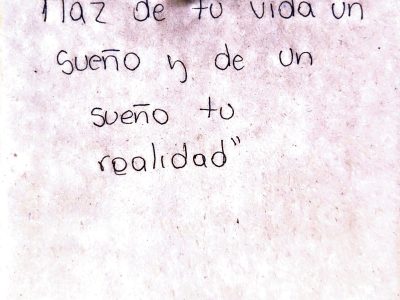 Haz de tu vida un
sueño y de un
sueño tu
realidad"